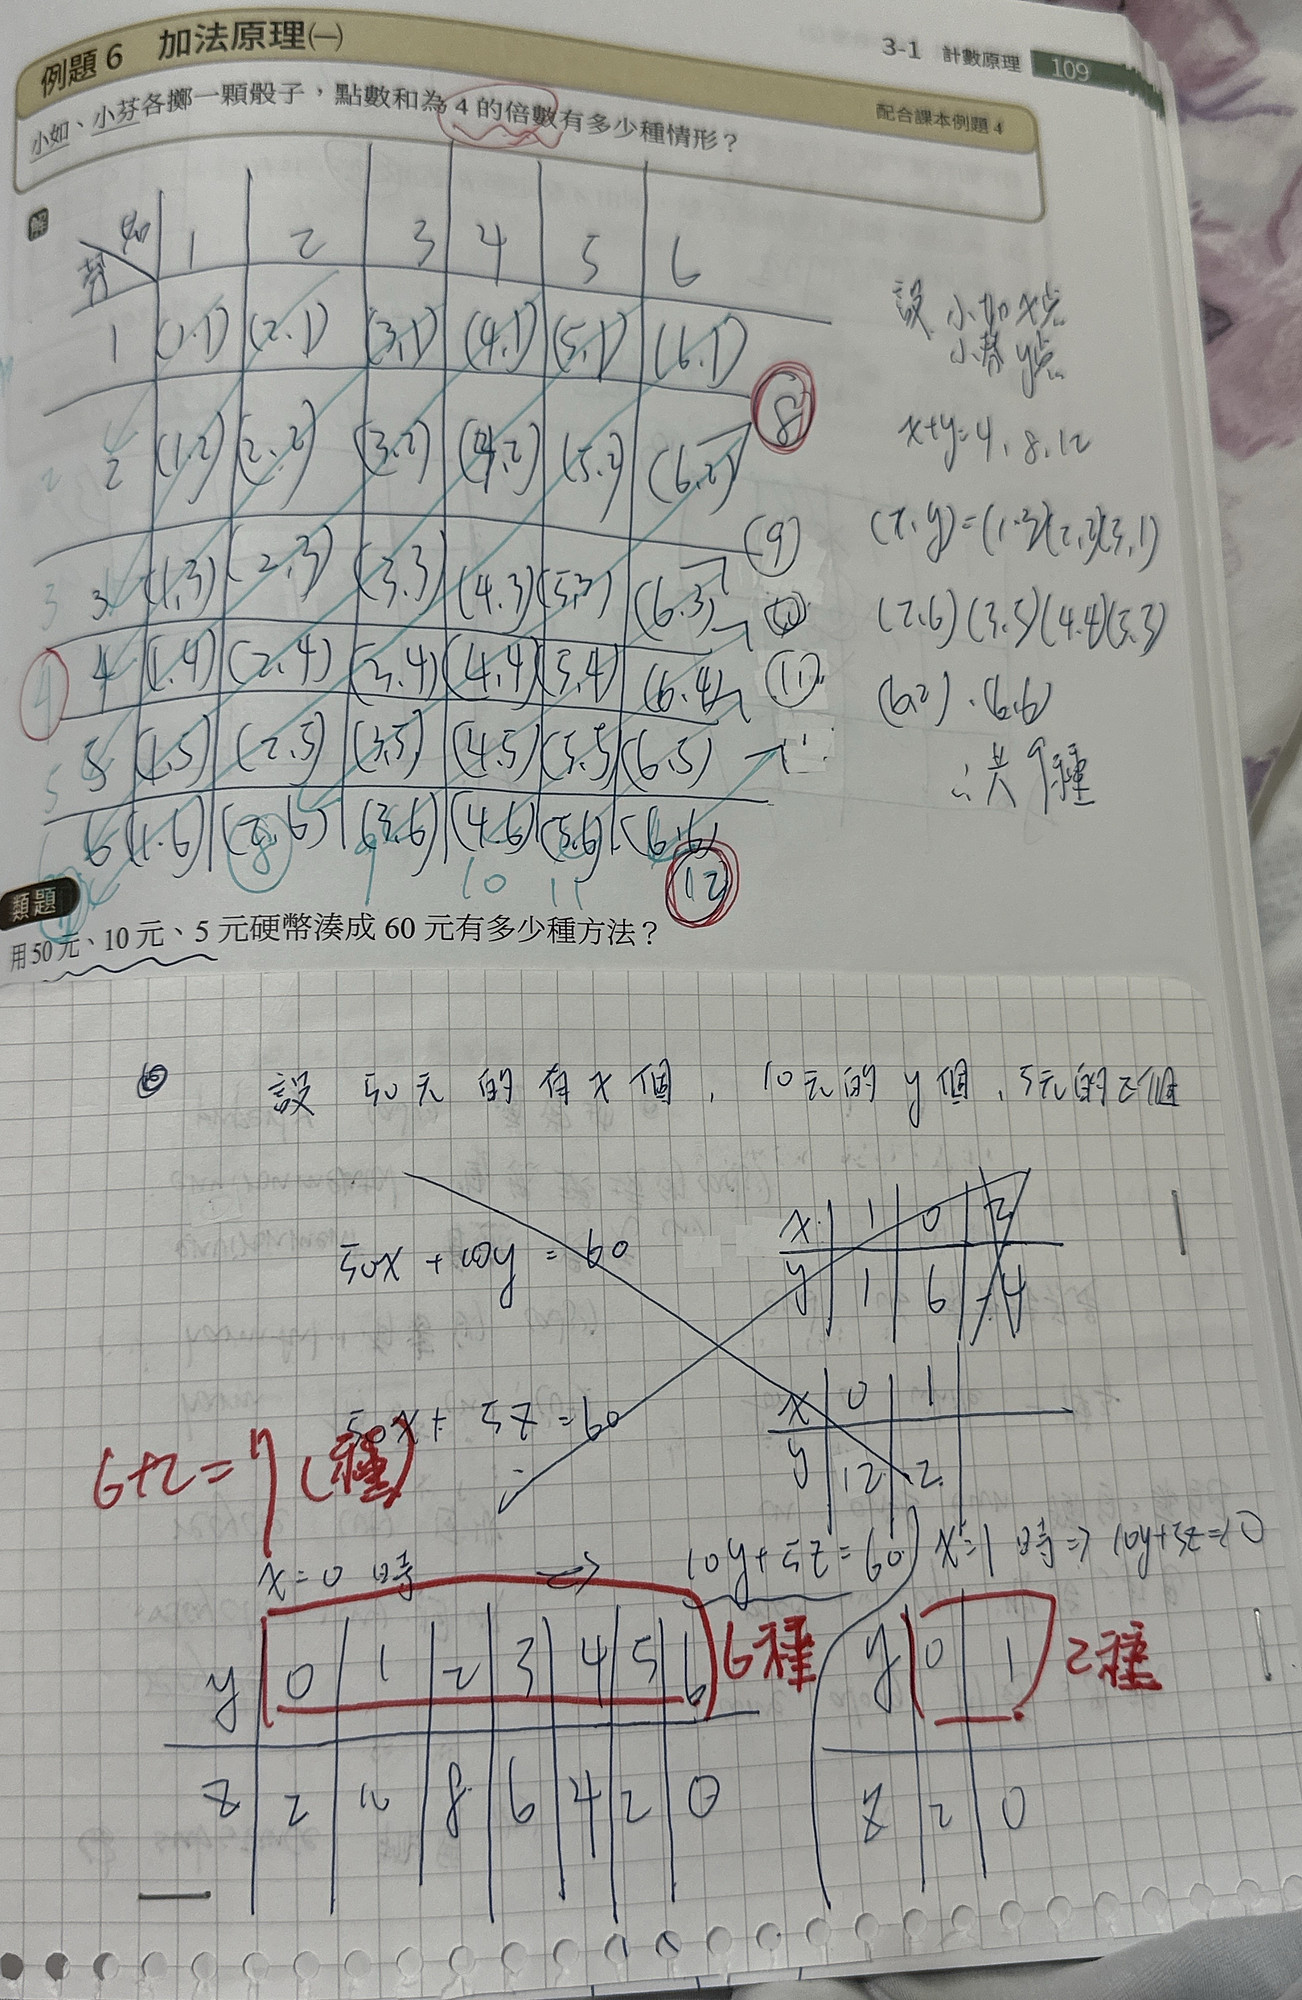 3-1 計數原理 109
例題 6 加法原理(一)
配合課本例題 4
小如、小芬各擲一顆骰子，點數和為 4 的倍數有多少種情形？
解
如 1 2 3 4 5 6
芬
1 (1,1) (2,1) (3,1) (4,1) (5,1) (6,1)
8
2 (1,2) (2,2) (3,2) (4,2) (5,2) (6,2)
9
3 (1,3) (2,3) (3,3) (4,3) (5,3) (6,3)
10
4 4 (1,4) (2,4) (3,4) (4,4) (5,4) (6,4)
11
5 5 (1,5) (2,5) (3,5) (4,5) (5,5) (6,5)
6 (1,6) (2,6) (3,6) (4,6) (5,6) (6,6)
8 9 10 11 12
設 小如 x點
小芬 y點
x+y=4,8,12
(x,y)=(1,3)(2,2)(3,1)
(2,6)(3,5)(4,4)(5,3)
(6,2),(6,6)
∴共9種
類題
用 50 元、10 元、5 元硬幣湊成 60 元有多少種方法？
設 50元的有x個，10元的y個，5元的z個
50x+10y=60
x 1 0 2
y 1 6 -4
50x+5z=60
x 0 1
y 12 2
6+2=7(種)
x=0 時 => 10y+5z=60
y 0 1 2 3 4 5 6 6種
z 2 10 8 6 4 2 0
x=1 時=>10y+5z=10
y 0 1 2種
z 2 0